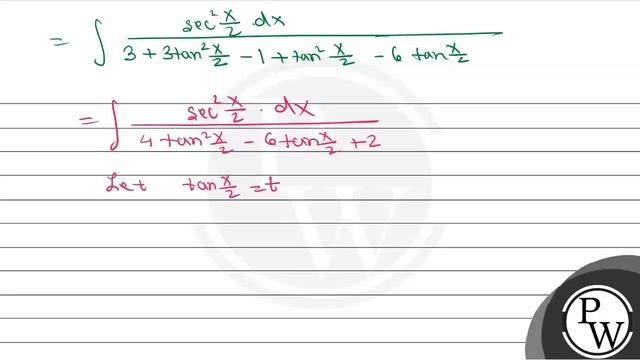 = ∫ sec² x/2 dx / (3 + 3tan² x/2 - 1 + tan² x/2 - 6 tan x/2)
= ∫ sec² x/2 · dx / (4 tan² x/2 - 6 tan x/2 + 2)
Let tan x/2 = t
P
W